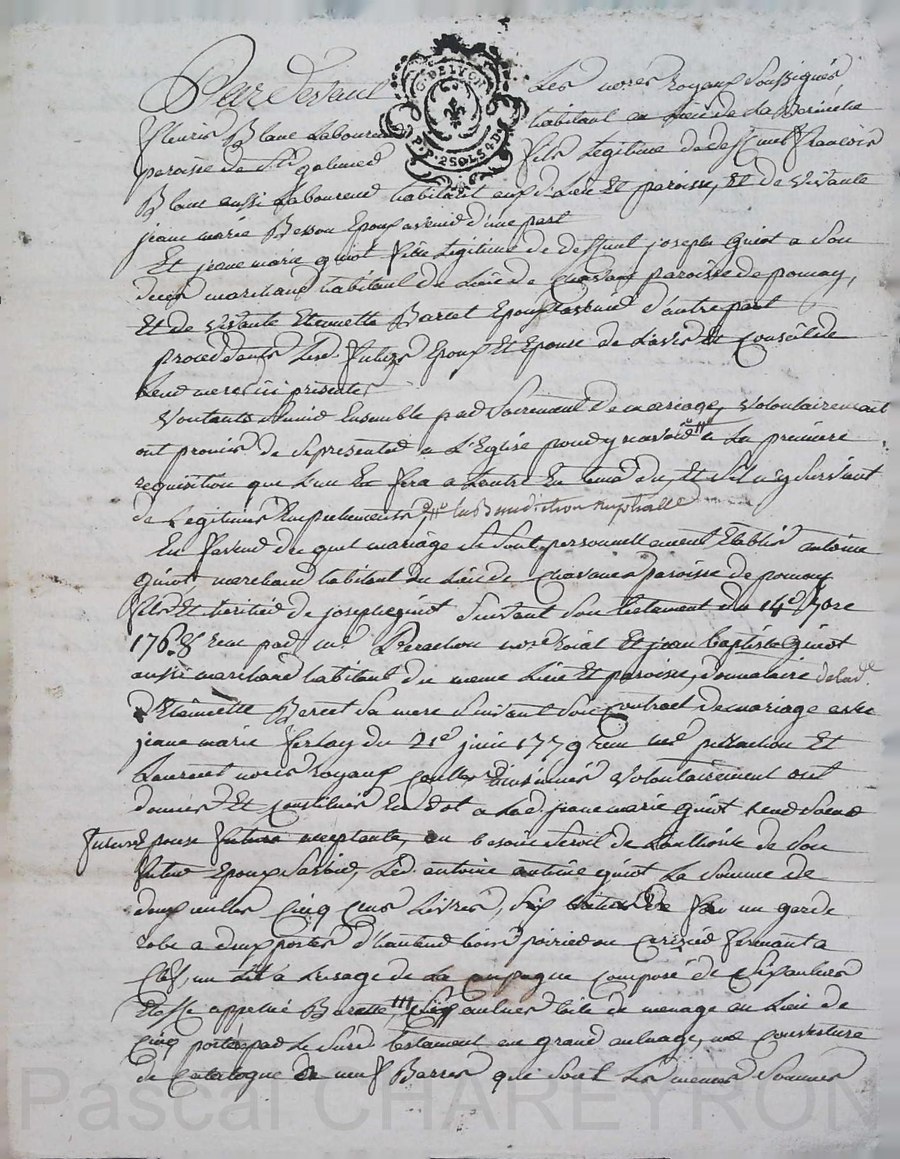 Par devant Les nores Royaux Soussignés
fleuris Blanc Laboureur habitant au Lieu de La
paroisse de St galmier fils Legitime de deffunt francois
Blanc aussi Laboureur habitant aud. Lieu Et paroisse, Et de vivante
jeanne marie Besson Epoux avenir d'une part
Et jeane marie quiot fille Legitime de deffunt joseph quiot a Son
deces marchand habitant du Lieu de Chavanes paroisse de pomay,
Et de vivante Etiennette Barcet Epouse avenir d'autre part
procedants Lesd. futurs Epoux Et Epouse de L'avis Et Conseil de
Leurs meres ici presentes
Voulants Sunir Ensemble par Sacrement de mariage, Volontairement
ont promis de se presenter a L'Eglise pour y recevoir a La premiere
requisition que L'un En fera a L'autre En Et S'il n'y Survient
de Legitimes Empechements, La Benediction nuptialle
En faveur duquel mariage Se Sont personnellement Etablis antoine
quiot marchand habitant du Lieu de Chavanes paroisse de pomay
fils Et heritier de joseph quiot Suivant Son testament du 14e
1768 recu par me perrachon nore roial Et jean baptiste quiot
aussi marchand habitant du meme Lieu Et paroisse, donnataire de lad.
d'Etiennette Barcet Sa mere Suivant Son Contract de mariage avec
jeane marie ferlay du 21e juin 1779 recu me perrachon Et
Laurent nores royaux Volontairement ont
donnés Et Constitués En dot a Lad. jeane marie quiot Leur Soeur
future Epouse future acceptante, au besoin Seroit de L'authorité de Son
futur Epoux Savoir, Led. antoine antoine quiot La Somme de
deux milles Cinq Cens Livres, Six un garde
robe a deux portes d'hauteur bois poirier ou Cerizier fermant a
Clef, un Lit a L'usage de La Campagne Composé de Six aulnes
Etoffe appellé Buratte, Six aulnes toile de menage au Lieu de
Cinq portés par Le Susd. testament en grand aulnage, une Couverture
de Catalogne de neuf Barres qui Sont Les memes Sommes
G. DE LYON
P. P. 2 SOLS 4 D
Pascal CHAREYRON